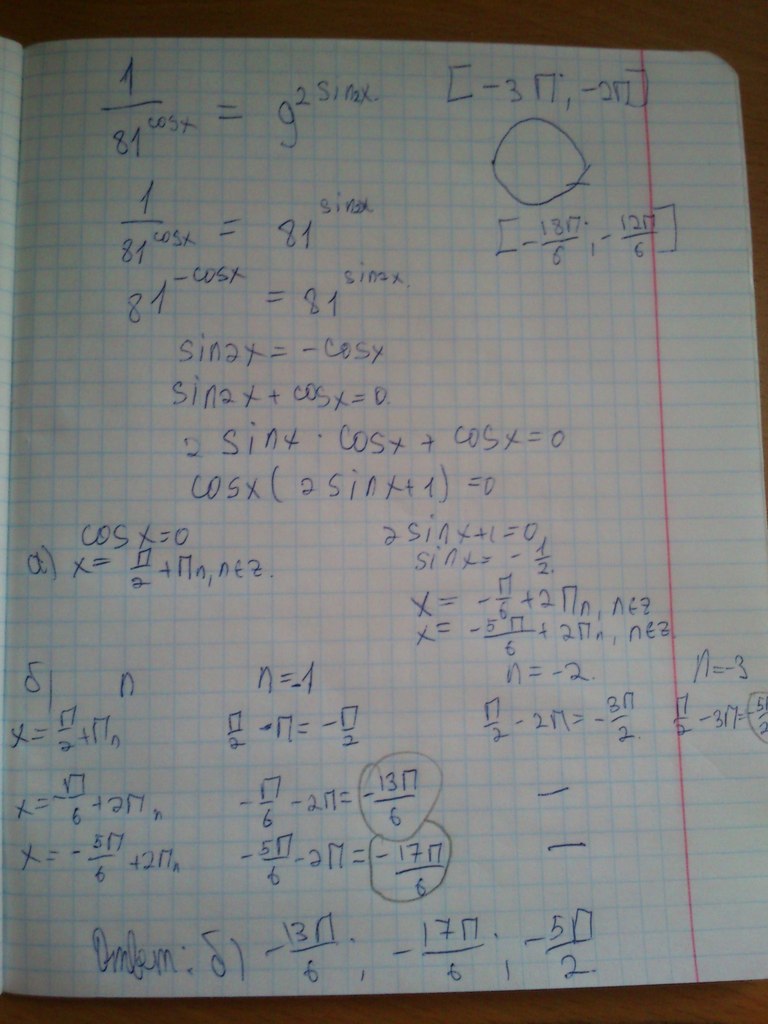 1/81^cosx = 9^2sin2x [-3π; -2π]
1/81^cosx = 81^sin2x [-18π/6; -12π/6]
81^-cosx = 81^sin2x
sin2x = -cosx
sin2x + cosx = 0
2 sinx · cosx + cosx = 0
cosx(2sinx+1) = 0
cosx=0 2sinx+1=0
а) x = π/2 + πn, n∈z. sinx = -1/2
x = -π/6 + 2πn, n∈z
x = -5π/6 + 2πn, n∈z
б) n n=-1 n=-2. n=-3
x = π/2 + πn π/2 - π = -π/2 π/2 - 2π = -3π/2 π/2 - 3π = -5π/2
x = -π/6 + 2πn -π/6 - 2π = -13π/6 —
x = -5π/6 + 2πn -5π/6 - 2π = -17π/6 —
Ответ: б) -13π/6; -17π/6; -5π/2